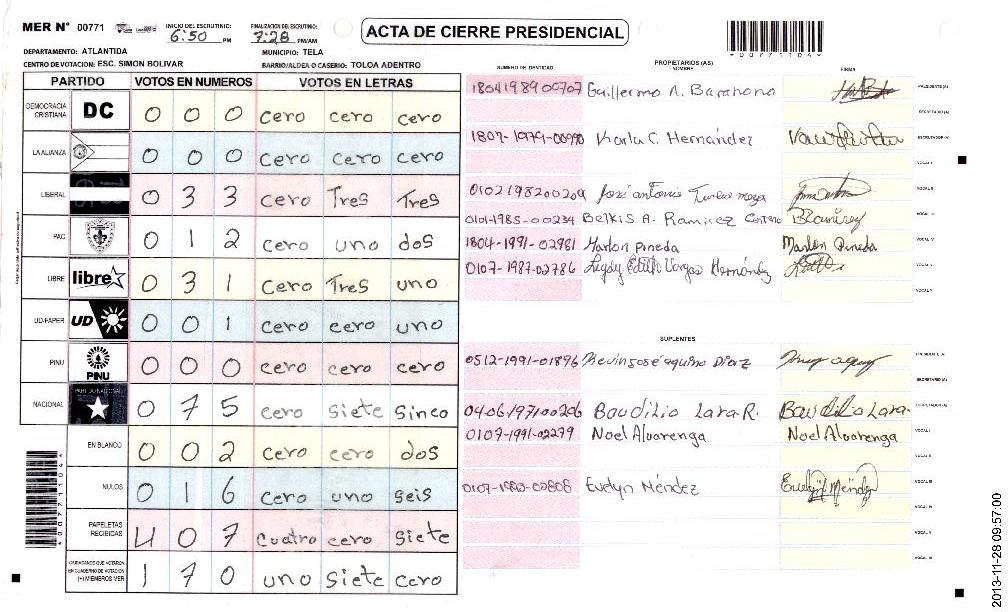 MER Nº 00771 INICIO DEL ESCRUTINIO: 6:50 PM FINALIZACIÓN DEL ESCRUTINIO: 7:28 PM/AM
ACTA DE CIERRE PRESIDENCIAL
*00771104*
DEPARTAMENTO: ATLANTIDA MUNICIPIO: TELA
CENTRO DE VOTACION: ESC. SIMON BOLIVAR BARRIO/ALDEA O CASERIO: TOLOA ADENTRO
PARTIDO VOTOS EN NUMEROS VOTOS EN LETRAS
DEMOCRACIA CRISTIANA DC 0 0 0 cero cero cero
LA ALIANZA 0 0 0 cero cero cero
LIBERAL 0 3 3 cero Tres Tres
PAC 0 1 2 cero uno dos
LIBRE libre 0 3 1 cero Tres uno
UD-FAPER UD 0 0 1 cero cero uno
PINU PINU 0 0 0 cero cero cero
NACIONAL 0 7 5 cero siete sinco
EN BLANCO 0 0 2 cero cero dos
NULOS 0 1 6 cero uno seis
PAPELETAS RECIBIDAS 4 0 7 cuatro cero siete
CIUDADANOS QUE VOTARON EN CUADERNO DE VOTACION (+) MIEMBROS MER 1 7 0 uno siete cero
PROPIETARIOS (AS)
NUMERO DE IDENTIDAD NOMBRE FIRMA
1804198900707 Guillermo A. Barahona PRESIDENTE (A)
SECRETARIO (A)
1807-1979-00990 Karla C. Hernández ESCRUTADOR (A)
VOCAL I
0102198200204 José antonio VOCAL II
0101-1985-00234 Belkis A. Ramirez Centeno BRamirez VOCAL III
1804-1991-02981 Marlon Pineda Marlon Pineda VOCAL IV
0107-1987-02786 Leydy Edith Vargas Hernández VOCAL V
VOCAL VI
SUPLENTES
0512-1991-01896 Kevin josé aquino Diaz PRESIDENTE (A)
SECRETARIO (A)
0406197100206 Baudilio Lara R. Baudilio Lara. ESCRUTADOR (A)
0109-1991-02279 Noel Alvarenga Noel Alvarenga VOCAL I
VOCAL II
0107-1993-02808 Evelyn Méndez Evelyn Méndez VOCAL III
VOCAL IV
VOCAL V
VOCAL VI
*00771104*
2013-11-28 09:57:00